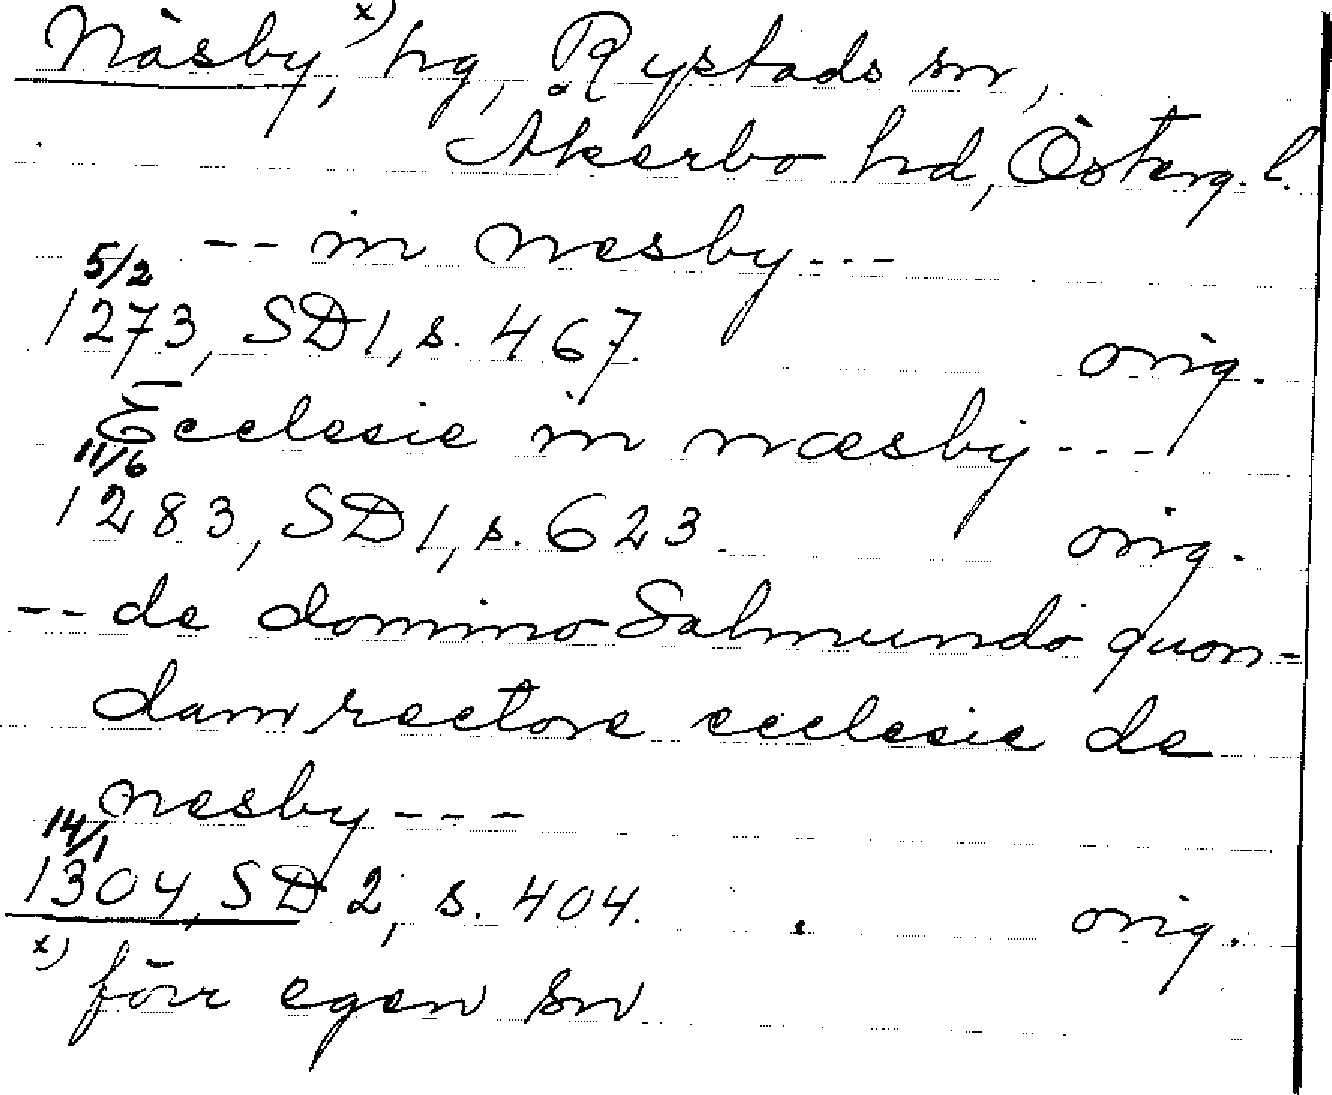 Näsby,x) hg, Rystads sn,
Åkerbo hd, Österg. l.
-- in nesby ---
5/2
1273, SD 1, s. 467. orig.
Ecclesie in næsby ---
11/6
1283, SD 1, s. 623. orig.
-- de domino Salmundo quon-
dam rectore ecclesie de
nesby ---
14/1
1304, SD 2, s. 404. orig.
x) förr egen sn